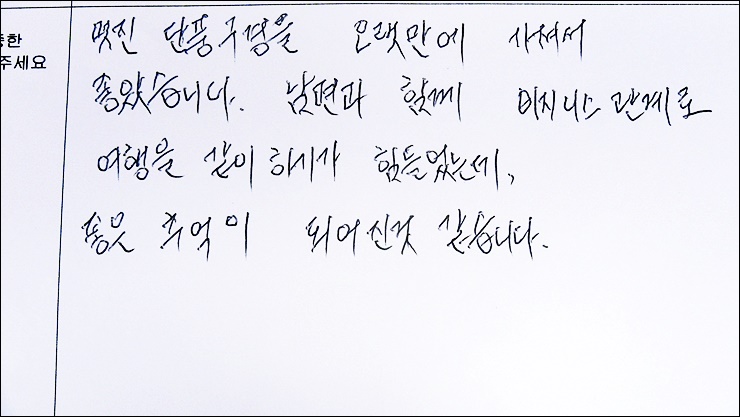 중한
주세요
멋진 단풍구경을 오랫만에 사져서
좋았습니다. 남편과 함께 비지니스 관계로
여행을 같이 하시가 힘들었는데,
좋은 추억이 되어신것 같습니다.